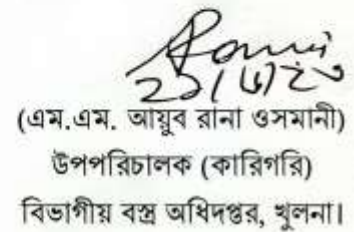 ২১/৬/২৩
(এম.এম. আয়ুব রানা ওসমানী)
উপপরিচালক (কারিগরি)
বিভাগীয় বস্ত্র অধিদপ্তর, খুলনা।